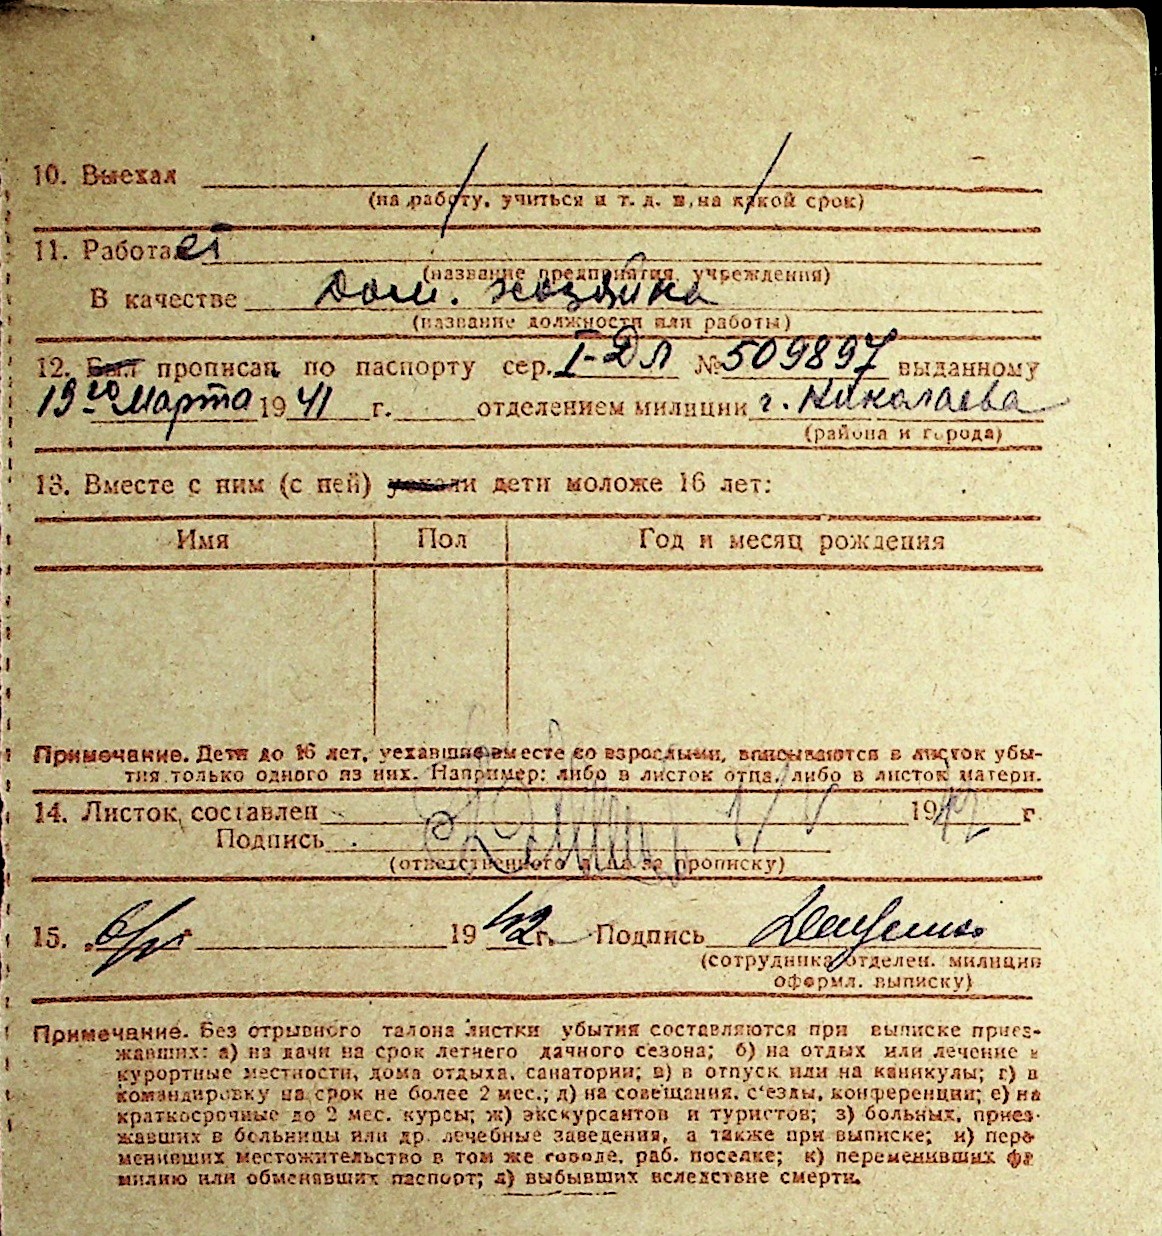 10. Выехал
(на работу, учиться и т. д. и на какой срок)
11. Работает
(название предприятия, учреждения)
В качестве Дом. хозяйка
(название должности или работы)
12. Был прописан по паспорту сер. I-ДЛ № 509897 выданному
19го Марта 1941 г. отделением милиции г. Николаева
(района и города)
13. Вместе с ним (с ней) уехали дети моложе 16 лет:
Имя Пол Год и месяц рождения
Примечание. Дети до 16 лет, уехавшие вместе со взрослыми, вписываются в листок убы-
тия только одного из них. Например: либо в листок отца, либо в листок матери.
14. Листок составлен 1/V 1942 г.
Подпись
(ответственного лица за прописку)
15. 1942 г. Подпись
(сотрудника отделен. милиции
оформл. выписку)
Примечание. Без отрывного талона листки убытия составляются при выписке приез-
жавших: а) на дачи на срок летнего дачного сезона; б) на отдых или лечение в
курортные местности, дома отдыха, санатории; в) в отпуск или на каникулы; г) в
командировку на срок не более 2 мес.; д) на совещания, с'езды, конференции; е) на
краткосрочные до 2 мес. курсы; ж) экскурсантов и туристов; з) больных, приез-
жавших в больницы или др. лечебные заведения, а также при выписке; и) пере-
менивших местожительство в том же городе, раб. поселке; к) переменивших фа-
милию или обменявших паспорт; л) выбывших вследствие смерти.